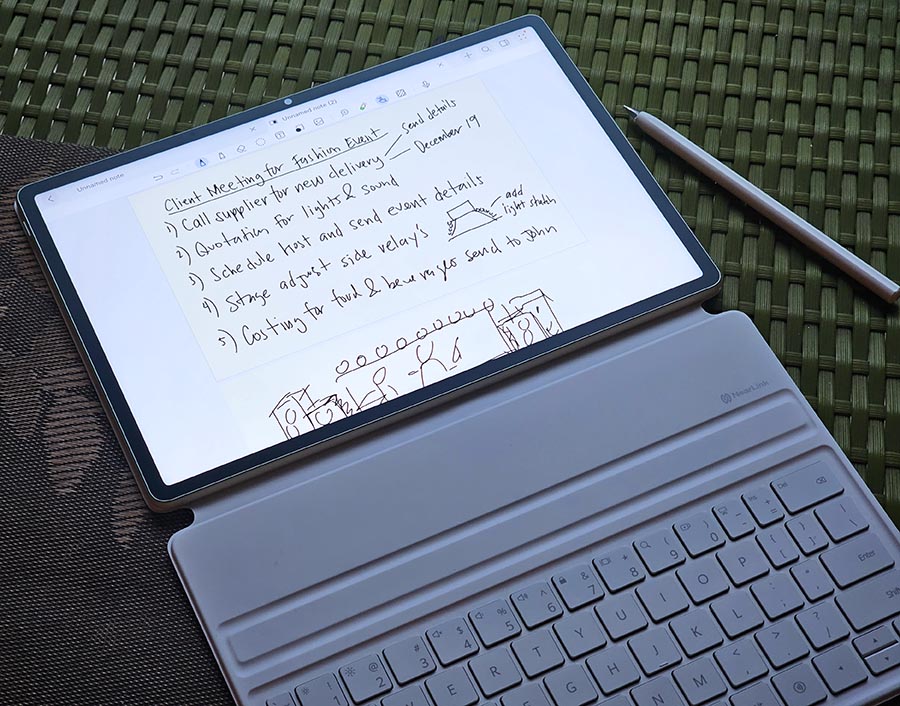 Unnamed note
Unnamed note (2)
Client Meeting for Fashion Event
1) Call supplier for new delivery
send details
December 19
2) Quotation for lights & sound
3) Schedule host and send event details
4) Stage adjust side relay's
add
light sketch
5) Costing for food & beverages send to John
NearLink
! @ # $ % ^ & * ( ) _ + Del
1 2 3 4 5 6 7 8 9 0 - =
W E R T Y U I O P { [ } ] | \
G H J K L : ; " ' Enter
N M < , > . ? / Shift